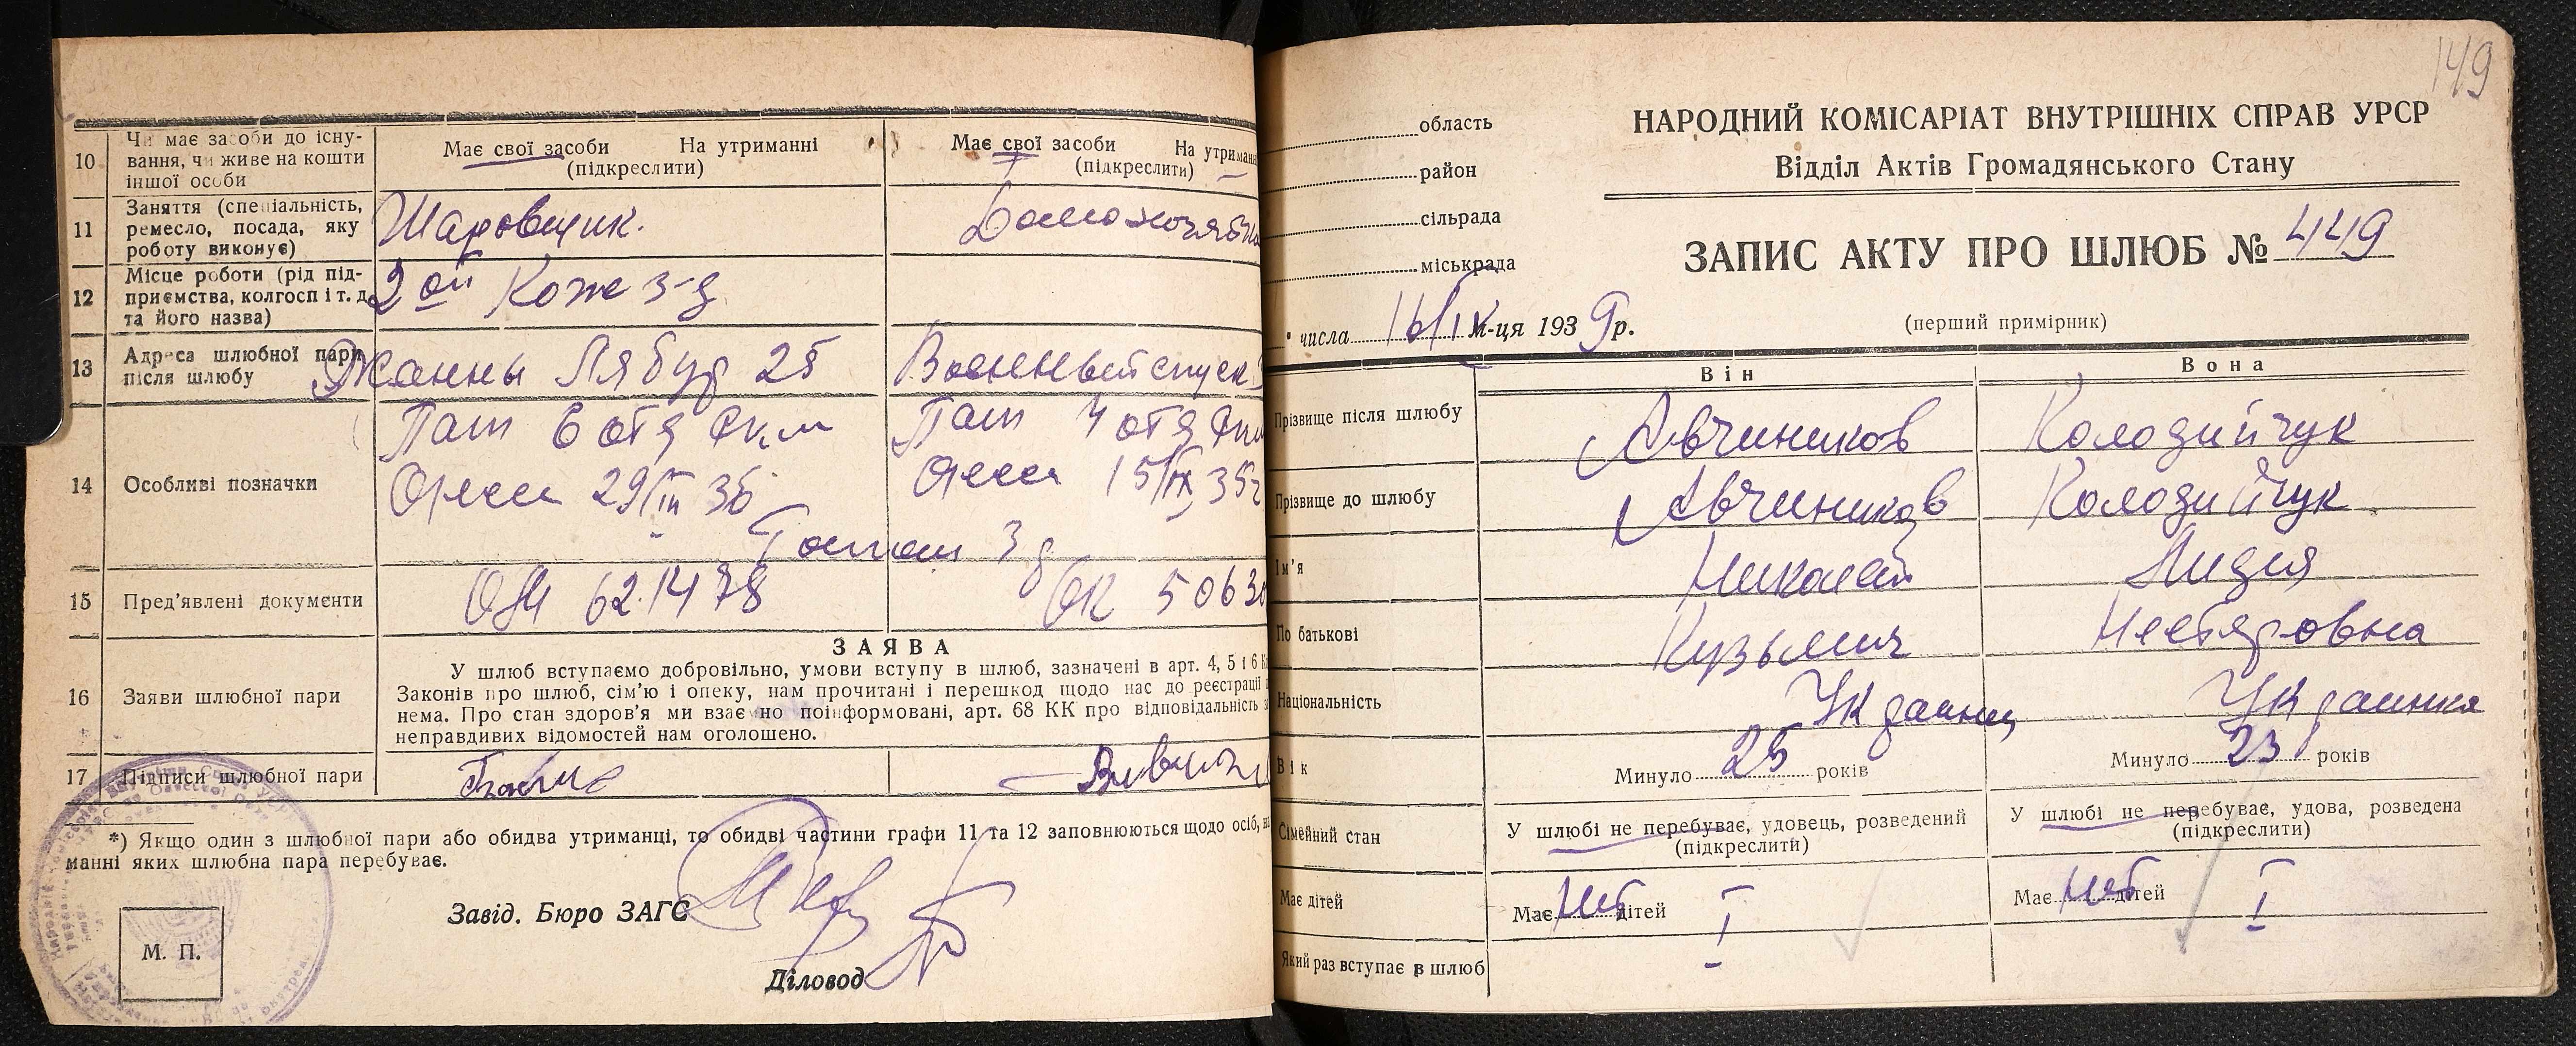 10 Чи має засоби до існу-
вання, чи живе на кошти
іншої особи
Має свої засоби На утриманні
(підкреслити)
Має свої засоби На утриман
(підкреслити)
11 Заняття (спеціальність,
ремесло, посада, яку
роботу виконує)
Шаровщик.
Домохозяйка
12 Місце роботи (рід під-
приємства, колгосп і т. д.
та його назва)
2ой Коже з-д
13 Адреса шлюбної пари
після шлюбу
Жанны Лябур 25
Военный спуск
14 Особливі позначки
Пасп 6 отд
Одесса 29/III 36
Пасп 4 отд
Одесса 15/IX 35г
15 Пред'явлені документи
62.1478
5063
ЗАЯВА
16 Заяви шлюбної пари
У шлюб вступаємо добровільно, умови вступу в шлюб, зазначені в арт. 4, 5 і 6 К
Законів про шлюб, сім'ю і опеку, нам прочитані і перешкод щодо нас до реєстрації
нема. Про стан здоров'я ми взаємно поінформовані, арт. 68 КК про відповідальність з
неправдивих відомостей нам оголошено.
17 Підписи шлюбної пари
*) Якщо один з шлюбної пари або обидва утриманці, то обидві частини графи 11 та 12 заповнюються щодо осіб, на
манні яких шлюбна пара перебуває.
Завід. Бюро ЗАГС
М. П.
Діловод
149
область
район
сільрада
міськрада
НАРОДНИЙ КОМІСАРІАТ ВНУТРІШНІХ СПРАВ УРСР
Відділ Актів Громадянського Стану
ЗАПИС АКТУ ПРО ШЛЮБ № 449
(перший примірник)
числа 16/IX м-ця 1939 р.
Він Вона
Прізвище після шлюбу Авчиников Колодийчук
Прізвище до шлюбу Авчиников Колодийчук
Ім'я Николай Лидия
По батькові Кузьмич Нестяровна
Національність Украинец Украинка
Вік Минуло 25 років Минуло 23 років
Сімейний стан
У шлюбі не перебуває, удовець, розведений
(підкреслити)
У шлюбі не перебуває, удова, розведена
(підкреслити)
Має дітей Має нет дітей Має нет дітей
Який раз вступає в шлюб I I